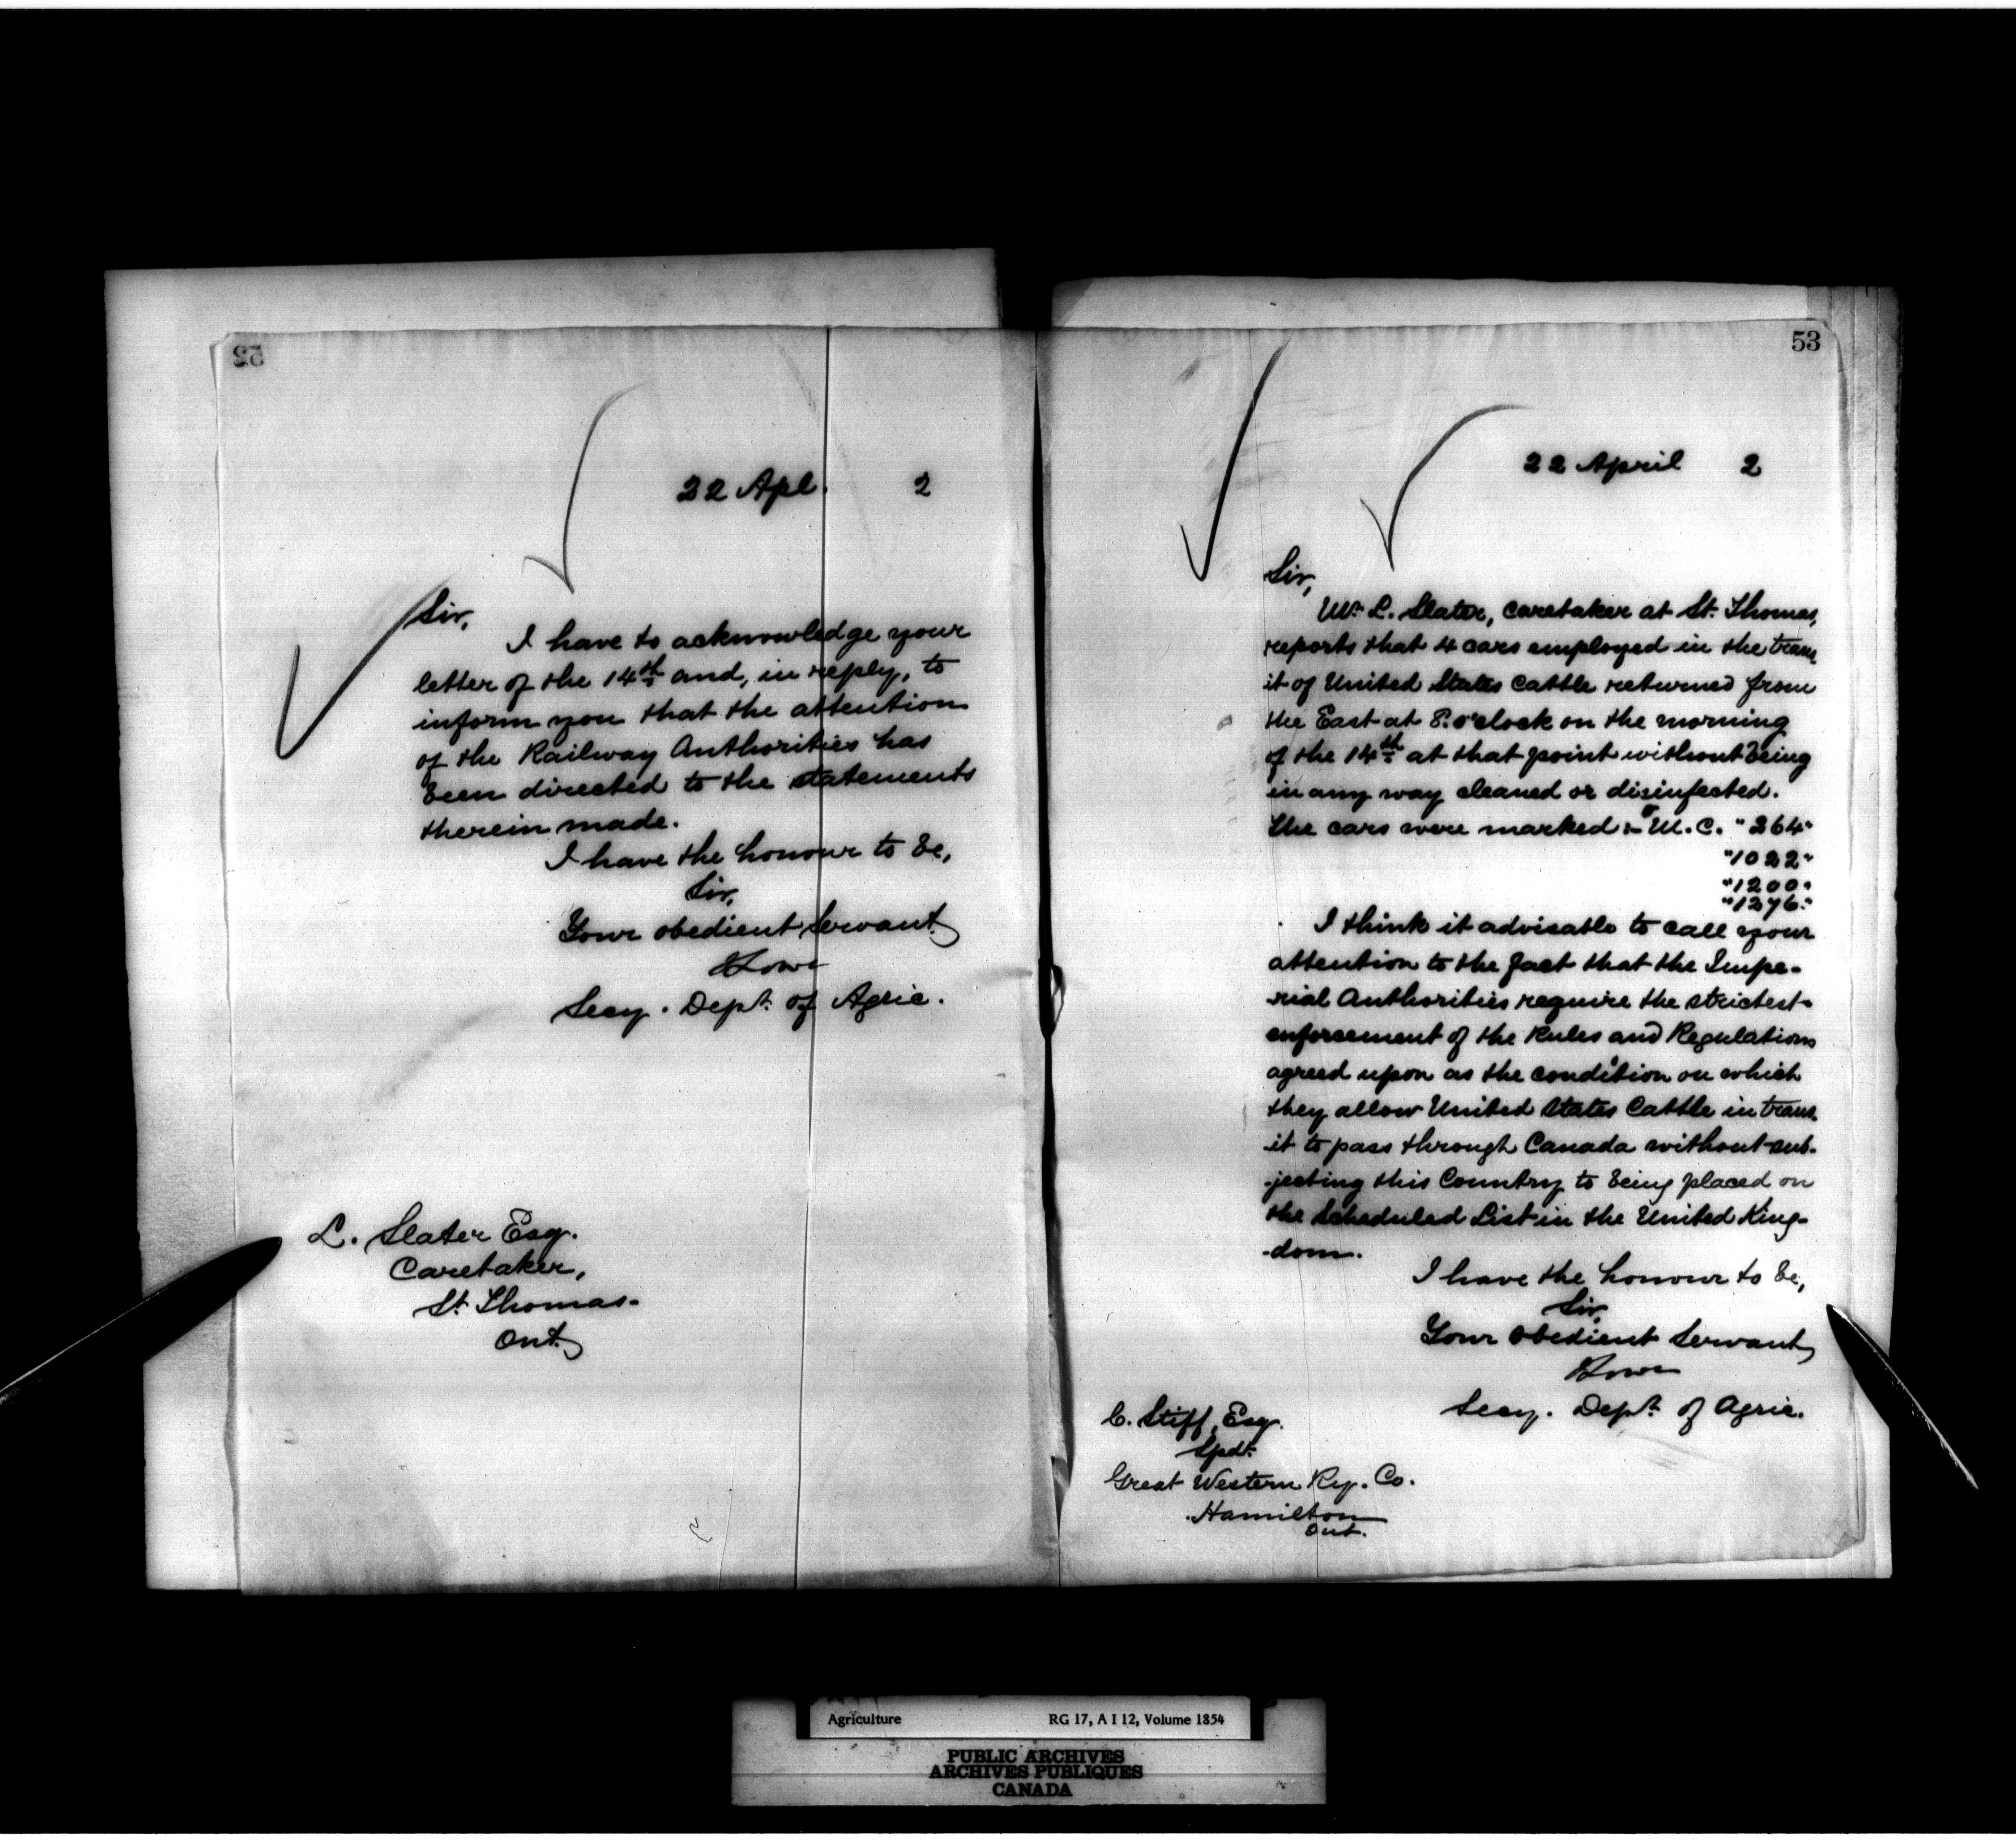 52
22 Apl. 2
Sir,
I have to acknowledge your
letter of the 14th and, in reply, to
inform you that the attention
of the Railway Authorities has
been directed to the statements
therein made.
I have the honour to be,
Sir,
Your obedient servant,
Lowe
Secy. Dept. of Agric.
L. Slater Esq.
Caretaker,
St. Thomas.
Ont.
53
22 April 2
Sir,
Mr. L. Slater, caretaker at St. Thomas,
reports that 4 cars employed in the trans
it of United States cattle returned from
the East at 8. o'clock on the morning
of the 14th at that point without being
in any way cleaned or disinfected.
The cars were marked :- M. C. "264"
"1022"
"1200"
"1276."
I think it advisable to call your
attention to the fact that the Impe-
-rial Authorities require the strictest
enforcement of the Rules and Regulations
agreed upon as the condition on which
they allow United States Cattle in trans-
it to pass through Canada without sub-
-jecting this Country to being placed on
the Scheduled List in the United King-
-dom.
I have the honour to be,
Sir,
Your obedient Servant,
Lowe
Secy. Dept. of Agric.
C. Stiff, Esq.
Spdt.
Great Western Ry. Co.
Hamilton
Ont.
Agriculture RG 17, A I 12, Volume 1854
PUBLIC ARCHIVES
ARCHIVES PUBLIQUES
CANADA